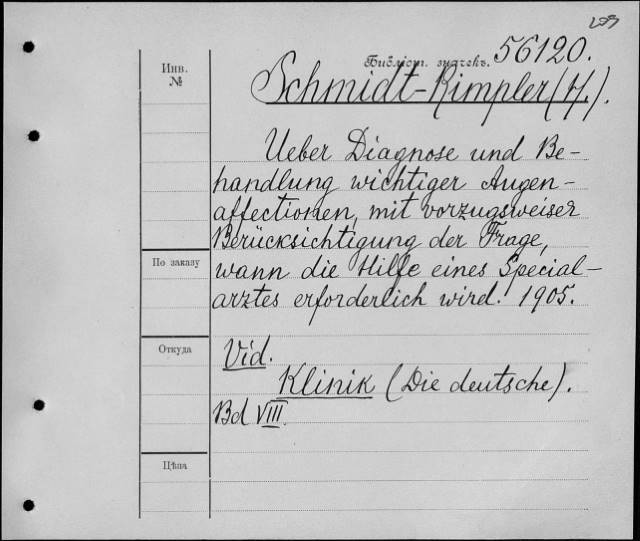 Библіот. значекъ. 56120.
Инв.
№
Schmidt-Rimpler (H.).
Ueber Diagnose und Be-
handlung wichtiger Augen-
affectionen, mit vorzugsweiser
Berücksichtigung der Frage,
По заказу
wann die Hilfe eines Special-
arztes erforderlich wird. 1905.
Откуда
Vid.
Klinik (Die deutsche).
Bd VIII.
Цѣна